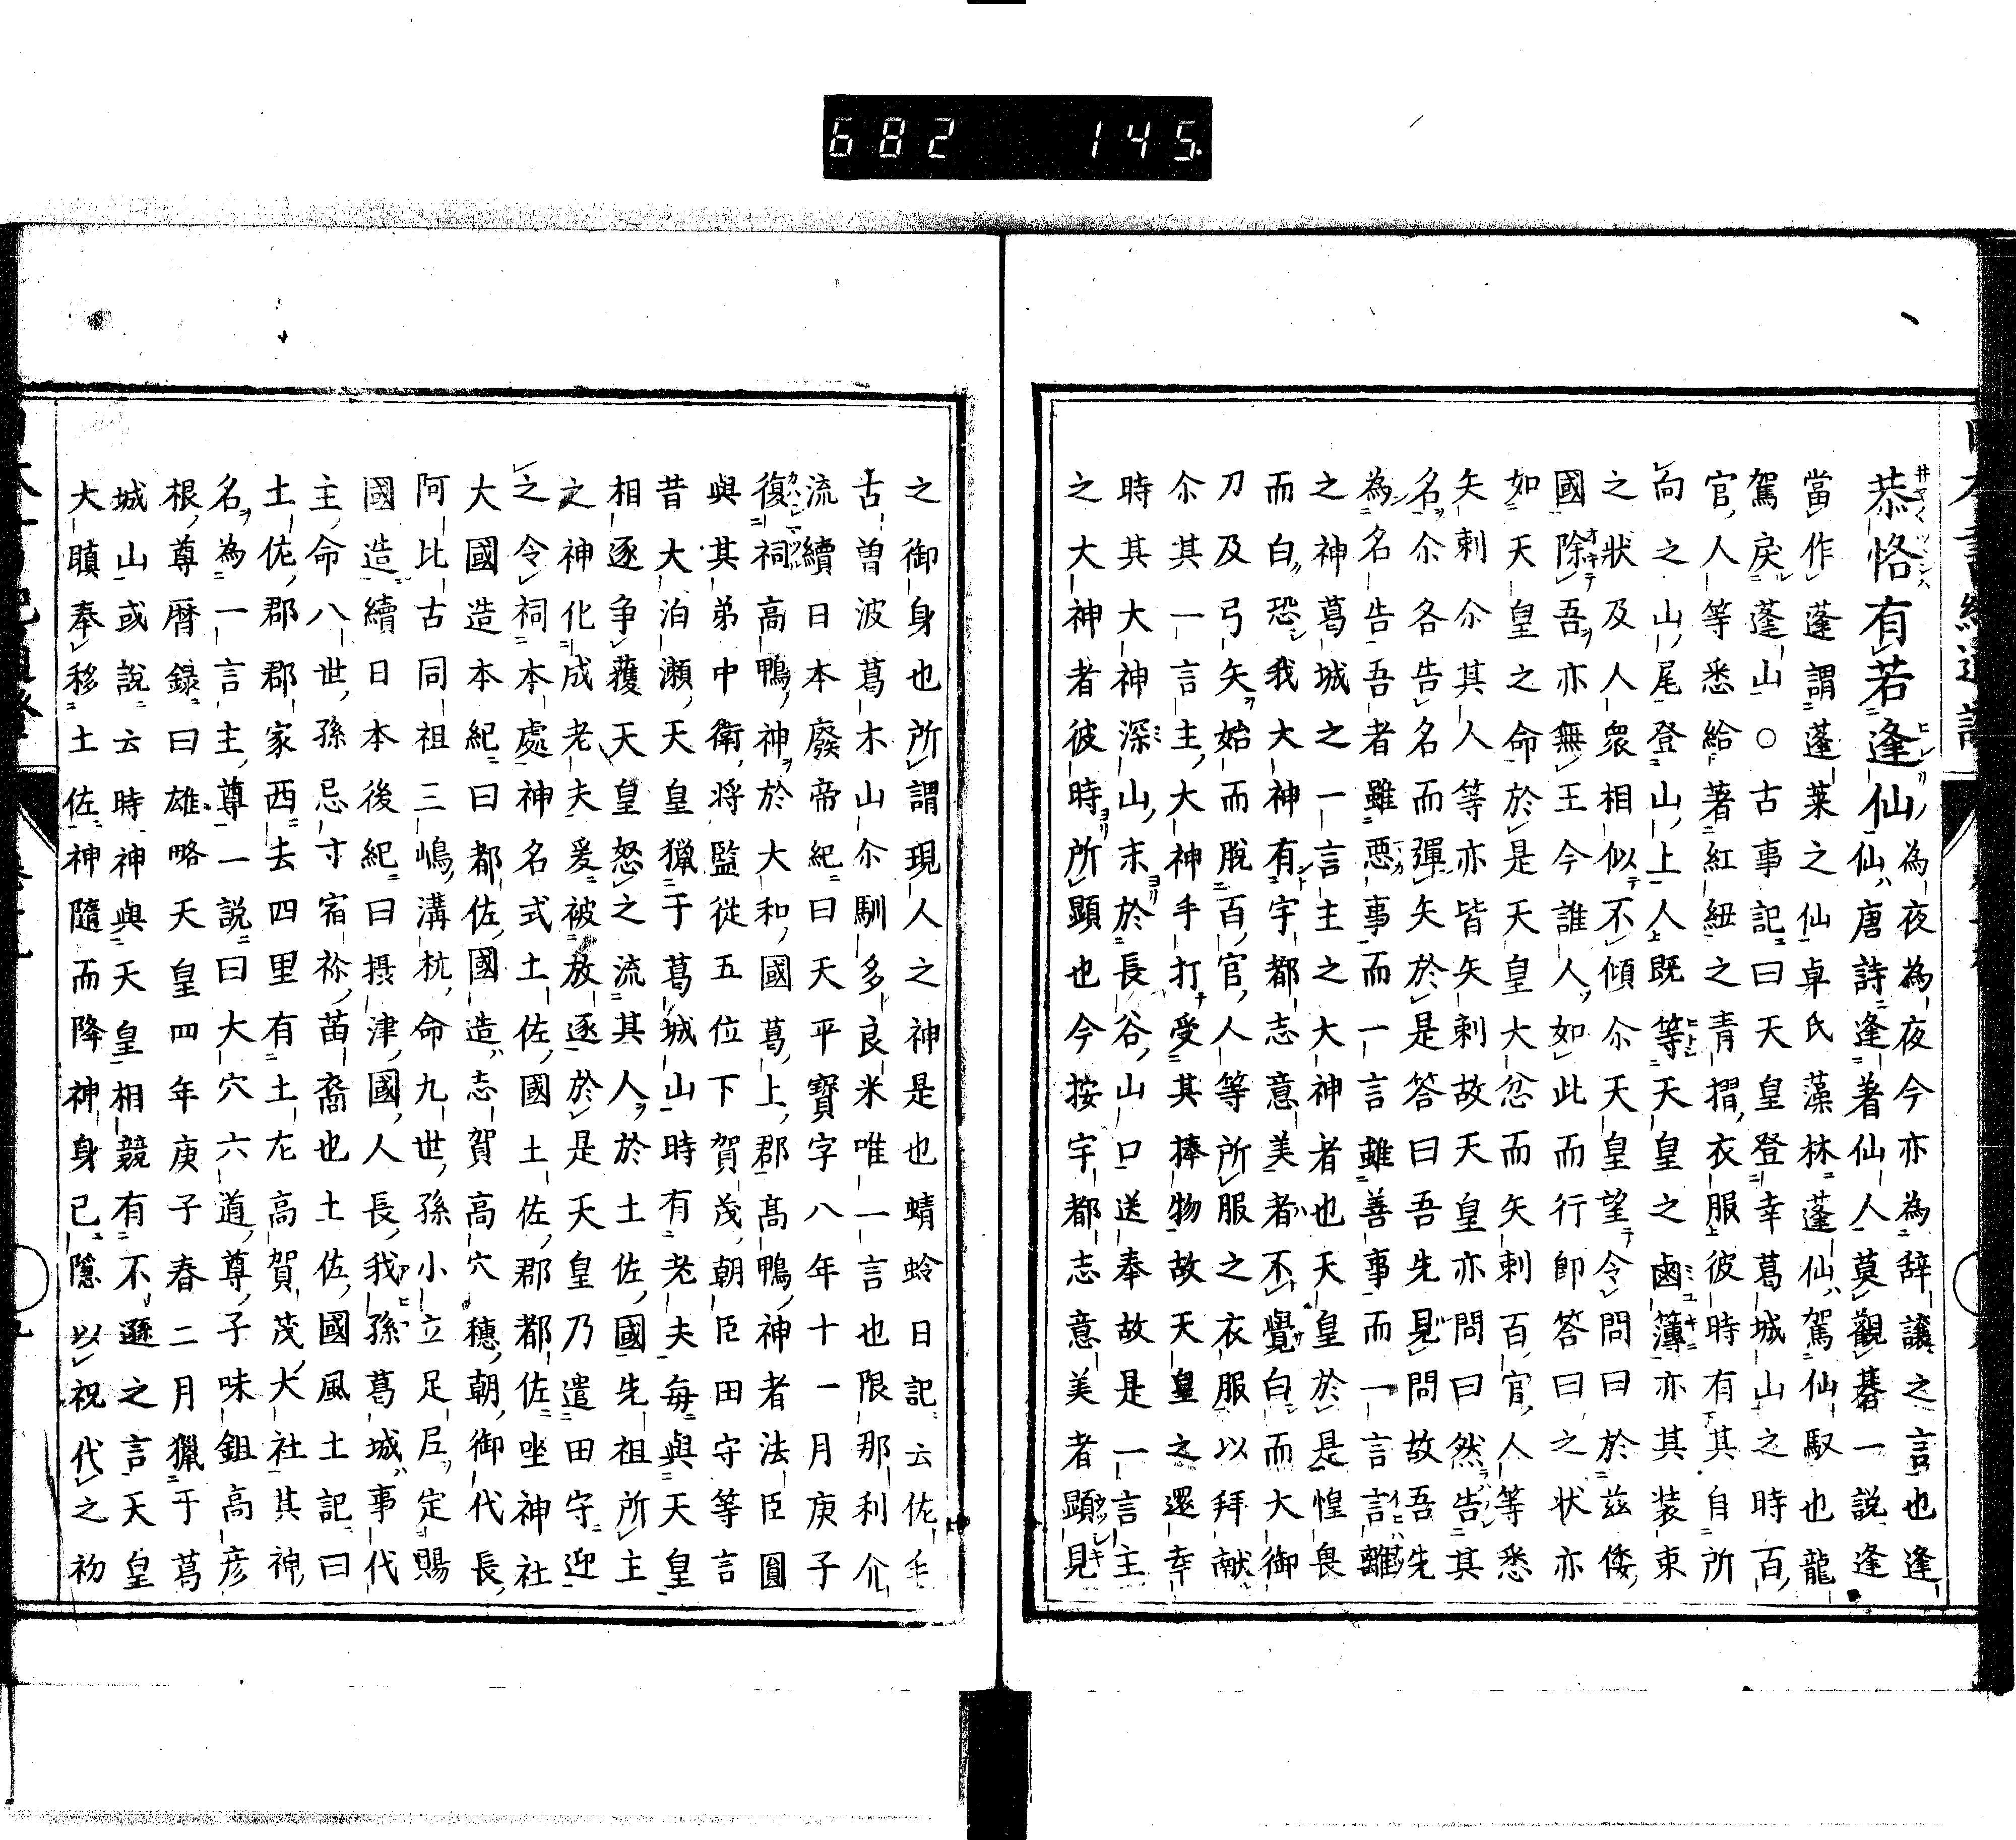 682 145
恭恪有若逢仙為夜為夜今亦為辞譲之言也逢
仙唐詩逢著仙人莫觀碁一説逢
當作蓬謂蓬莱之仙卓氏藻林蓬仙駕仙馭也龍
駕戻蓬山○古事記曰天皇登幸葛城山之時百
官人等悉給著紅紐之青摺衣服彼時有其自所
向之山尾登山上人既等天皇之鹵簿亦其装束
之狀及人衆相似不傾尒天皇望令問曰於茲倭
國除吾亦無王今誰人如此而行即答曰之状亦
如天皇之命於是天皇大忿而矢刺百官人等悉
矢刺尒其人等亦皆矢刺故天皇亦問曰然告其
名尒各告名而彈矢於是答曰吾先見問故吾先
為名告吾者雖悪事而一言雖善事而一言言離
之神葛城之一言主之大神者也天皇於是惶畏
而白恐我大神有宇都志意美者不覺白而大御
刀及弓矢始而脱百官人等所服之衣服以拜献
尒其一言主大神手打受其捧物故天皇之還幸
時其大神深山末於長谷山口送奉故是一言主
之大神者彼時所顕也今按宇都志意美者顕見
之御身也所謂現人之神是也蜻蛉日記云佐
古曽波葛木山尒馴多良米唯一言也限那利
流續日本廢帝紀曰天平寳字八年十一月庚子
復祠高鴨神於大和國葛上郡高鴨神者法臣圓
與其弟中衛将監從五位下賀茂朝臣田守等言
昔大泊瀬天皇獵于葛城山時有老夫毎與天皇
相逐争獲天皇怒之流其人於土佐國先祖所主
之神化成老夫爰被放逐於是天皇乃遣田守迎
之令祠本處神名式土佐國土佐郡都佐坐神社
大國造本紀曰都佐國造志賀高穴穂朝御代長
阿比古同祖三嶋溝杭命九世孫小立足尼定賜
國造續日本後紀曰摂津國人長我孫葛城事代
主命八世孫忌寸宿祢苗裔也土佐國風土記曰
土佐郡郡家西去四里有土左高賀茂大社其神
名為一言主尊一説曰大穴六道尊子味鉏高彦
根尊暦録曰雄略天皇四年庚子春二月獵于葛
城山或説云時神與天皇相競有不遜之言天皇
大瞋奉移土佐神隨而降神身已隱以祝代之初